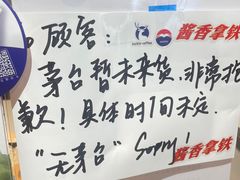 luckin coffee 酱香拿铁
顾客:
茅台暂未来货,非常抱
歉!具体时间未定.
"无茅台" Sorry!
酱香拿铁